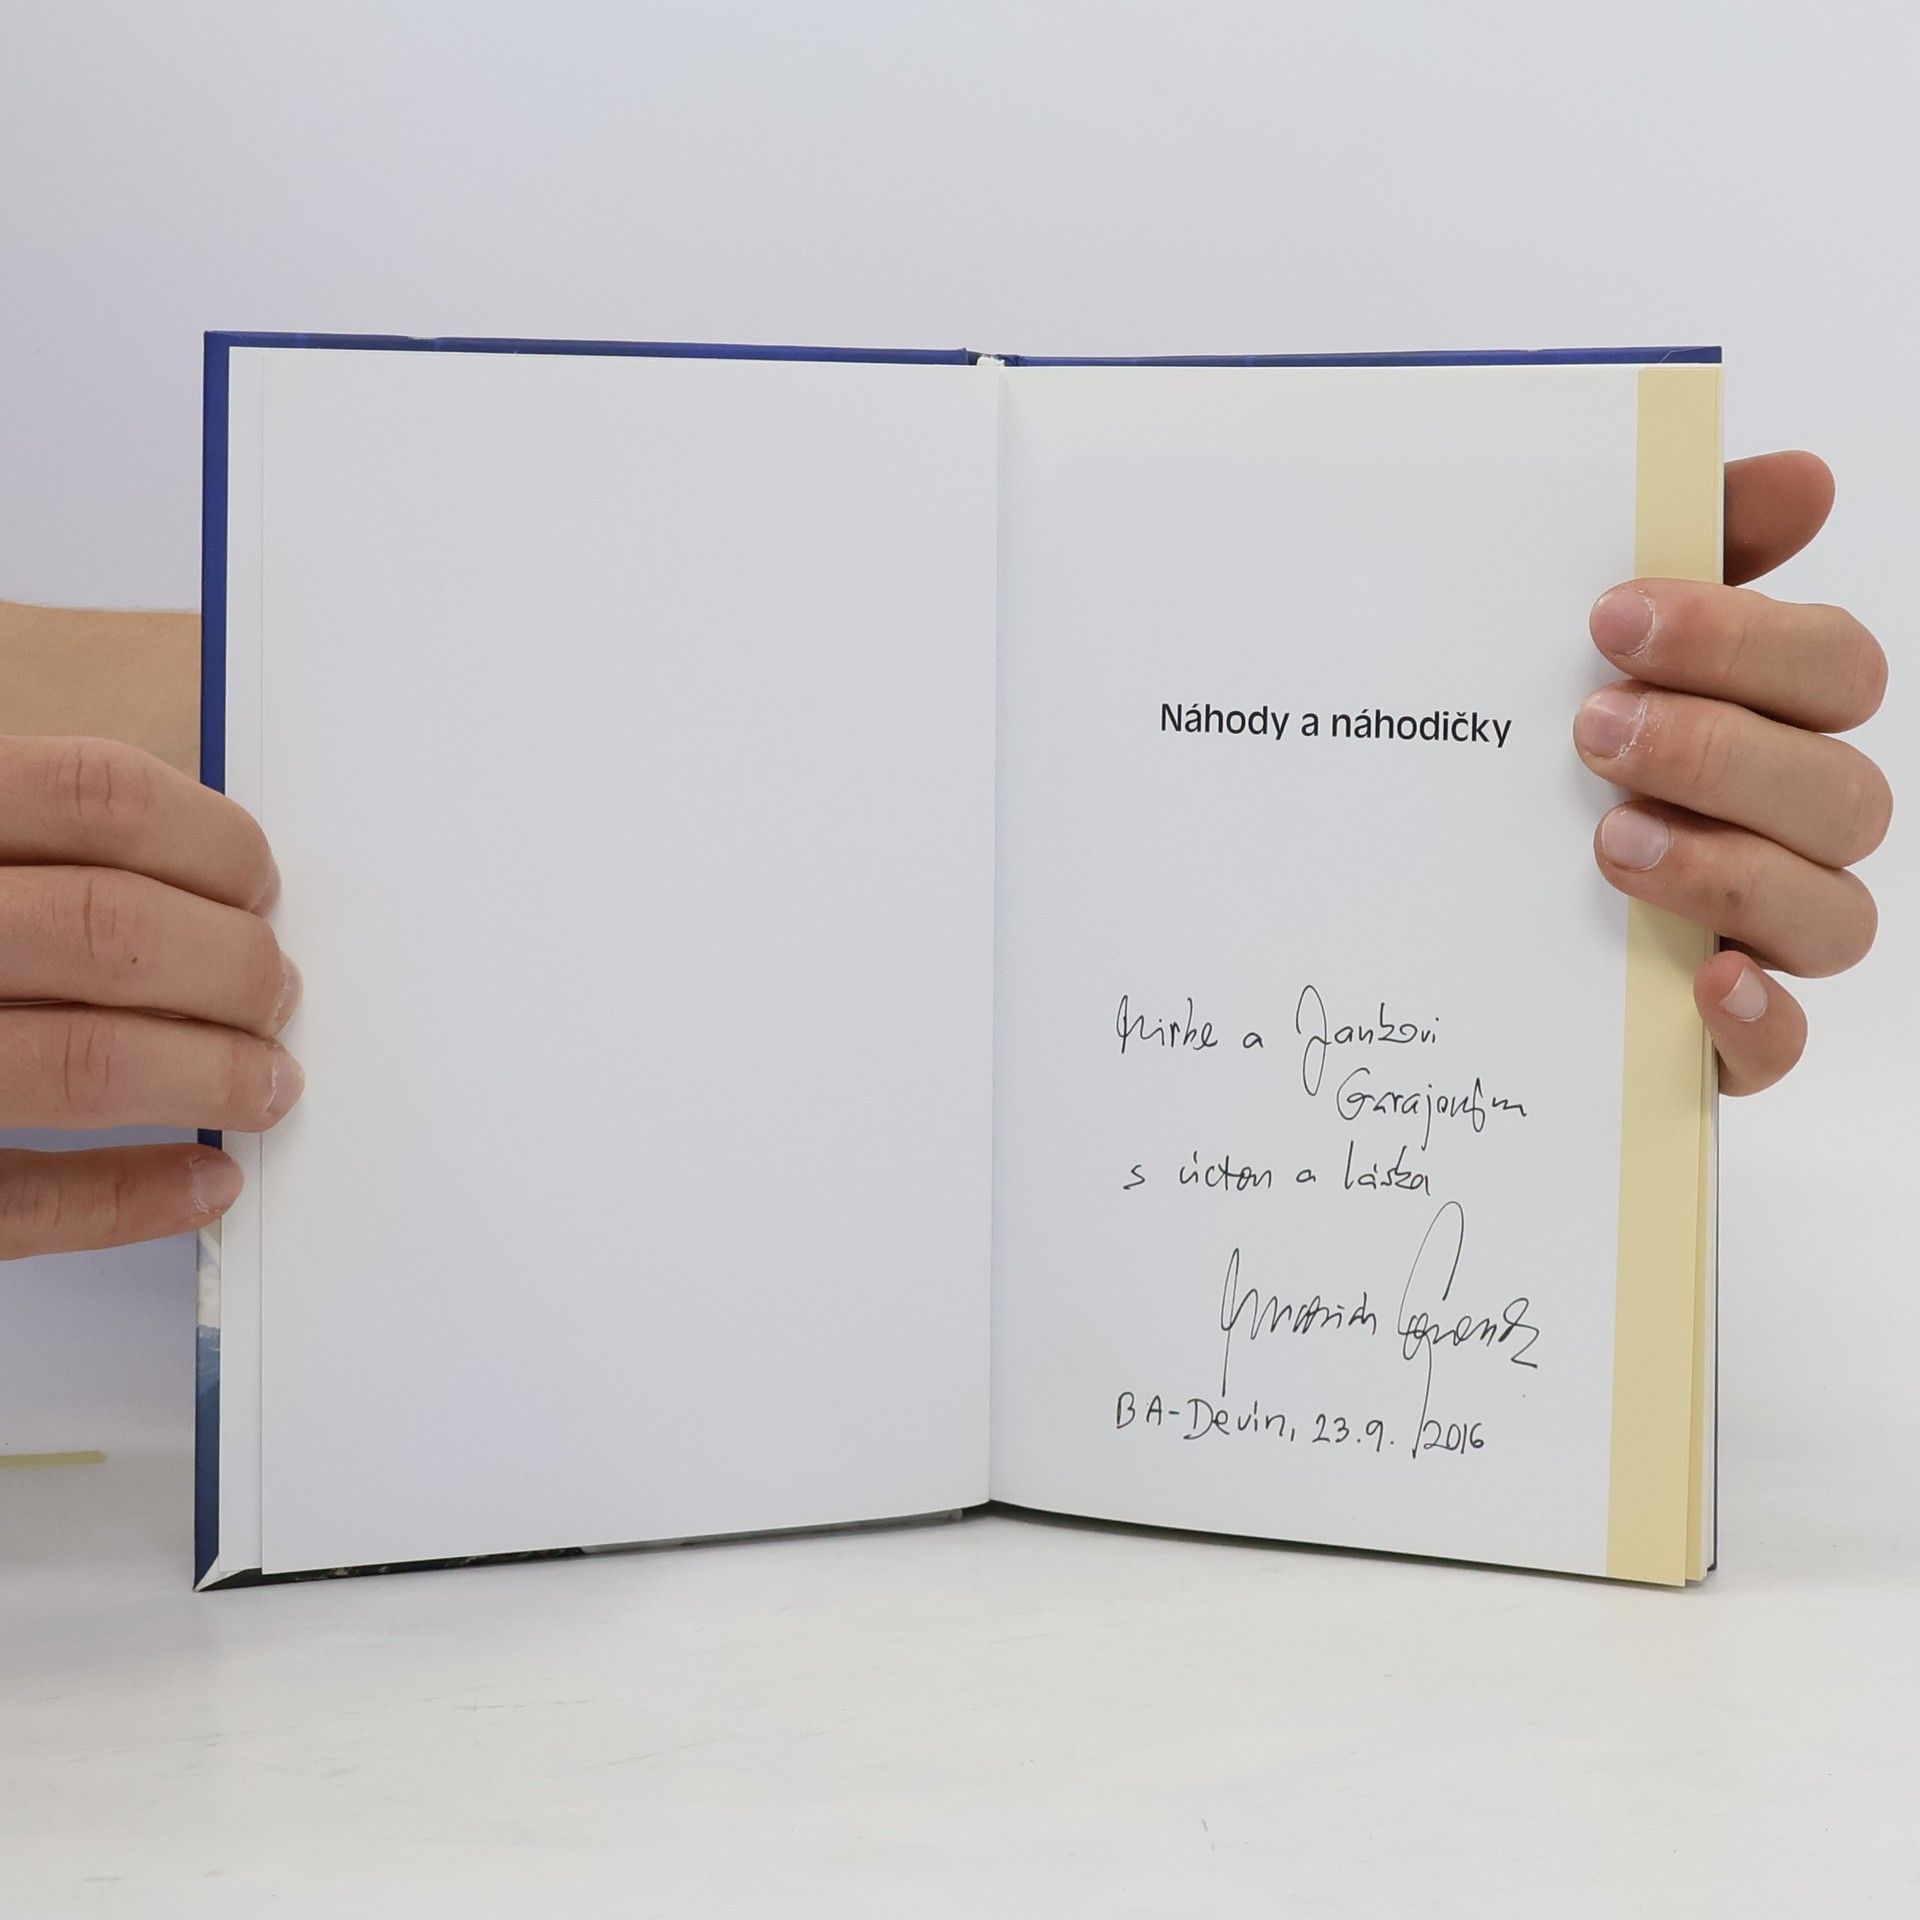 Náhody a náhodičky
Mirke a Jankovi
s úctou a láska
BA-Devín, 23.9. 2016